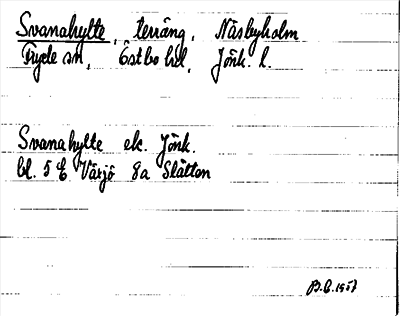 Svanahylte, terräng, Näsbyholm
Fryele sn, Östbo hd, Jönk. l.
Svanahylte ek. Jönk.
bl. 5 E Växjö 8a Slätten